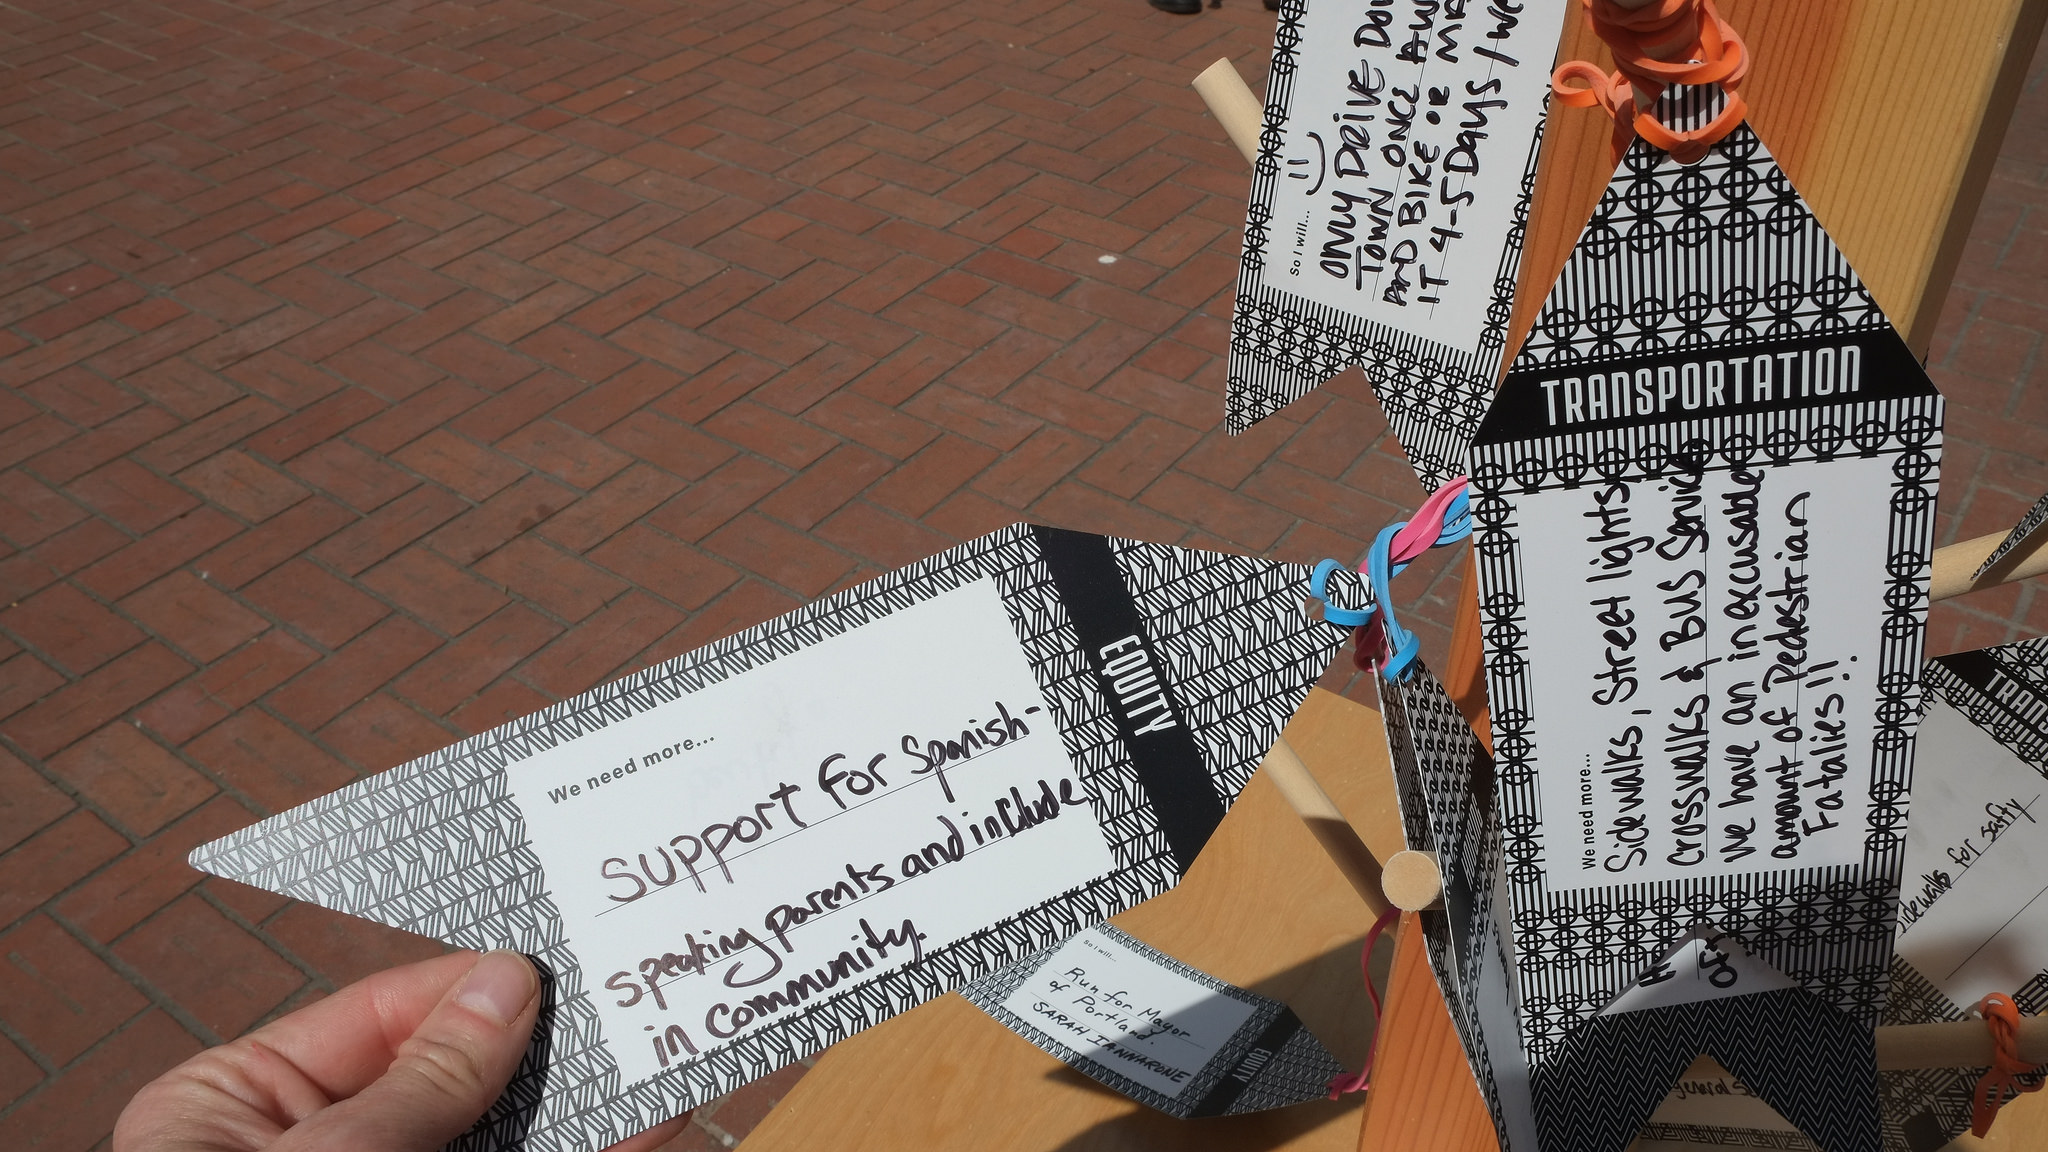 So I will...
ONLY DRIVE
TOWN ONCE
AND BIKE OR
IT 4-5 Days /
TRANSPORTATION
We need more...
Sidewalks, Street lights,
Crosswalks & Bus Service
we have an inexcusable
amount of Pedestrian
Fatalies!!
EQUITY
We need more...
support for Spanish-
speaking parents and include
in community.
So I will...
Run for Mayor
of Portland.
SARAH IANNARONE
EQUITY
Sidewalks for safty
general